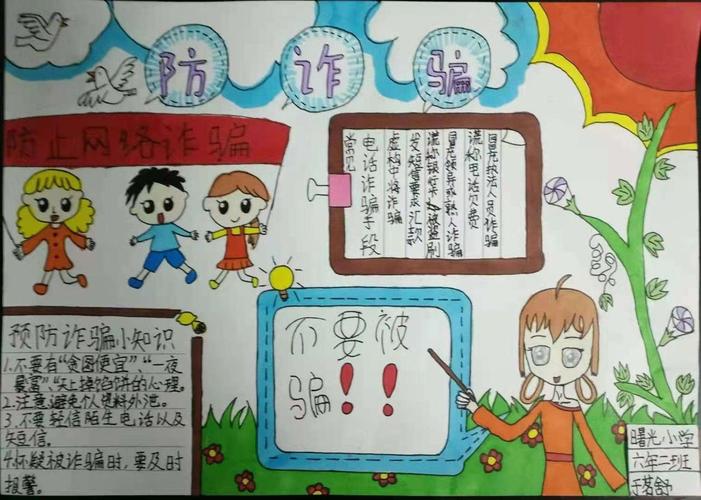 防诈骗
防止网络诈骗
常见
电话诈骗手段
虚构中将诈骗
发短信要求汇款
谎称银行卡被盗刷
冒充领导或熟人诈骗
谎称电话欠费
冒充执法人员诈骗
预防诈骗小知识
1.不要有“贪图便宜”、“一夜
暴富”“天上掉馅饼的心理。
2.注意避免个人资料外泄。
3.不要轻信陌生电话以及
短信。
4.怀疑被诈骗时,要及时
报警。
不要被
骗!!
曙光小学
六年二班
于茗舒